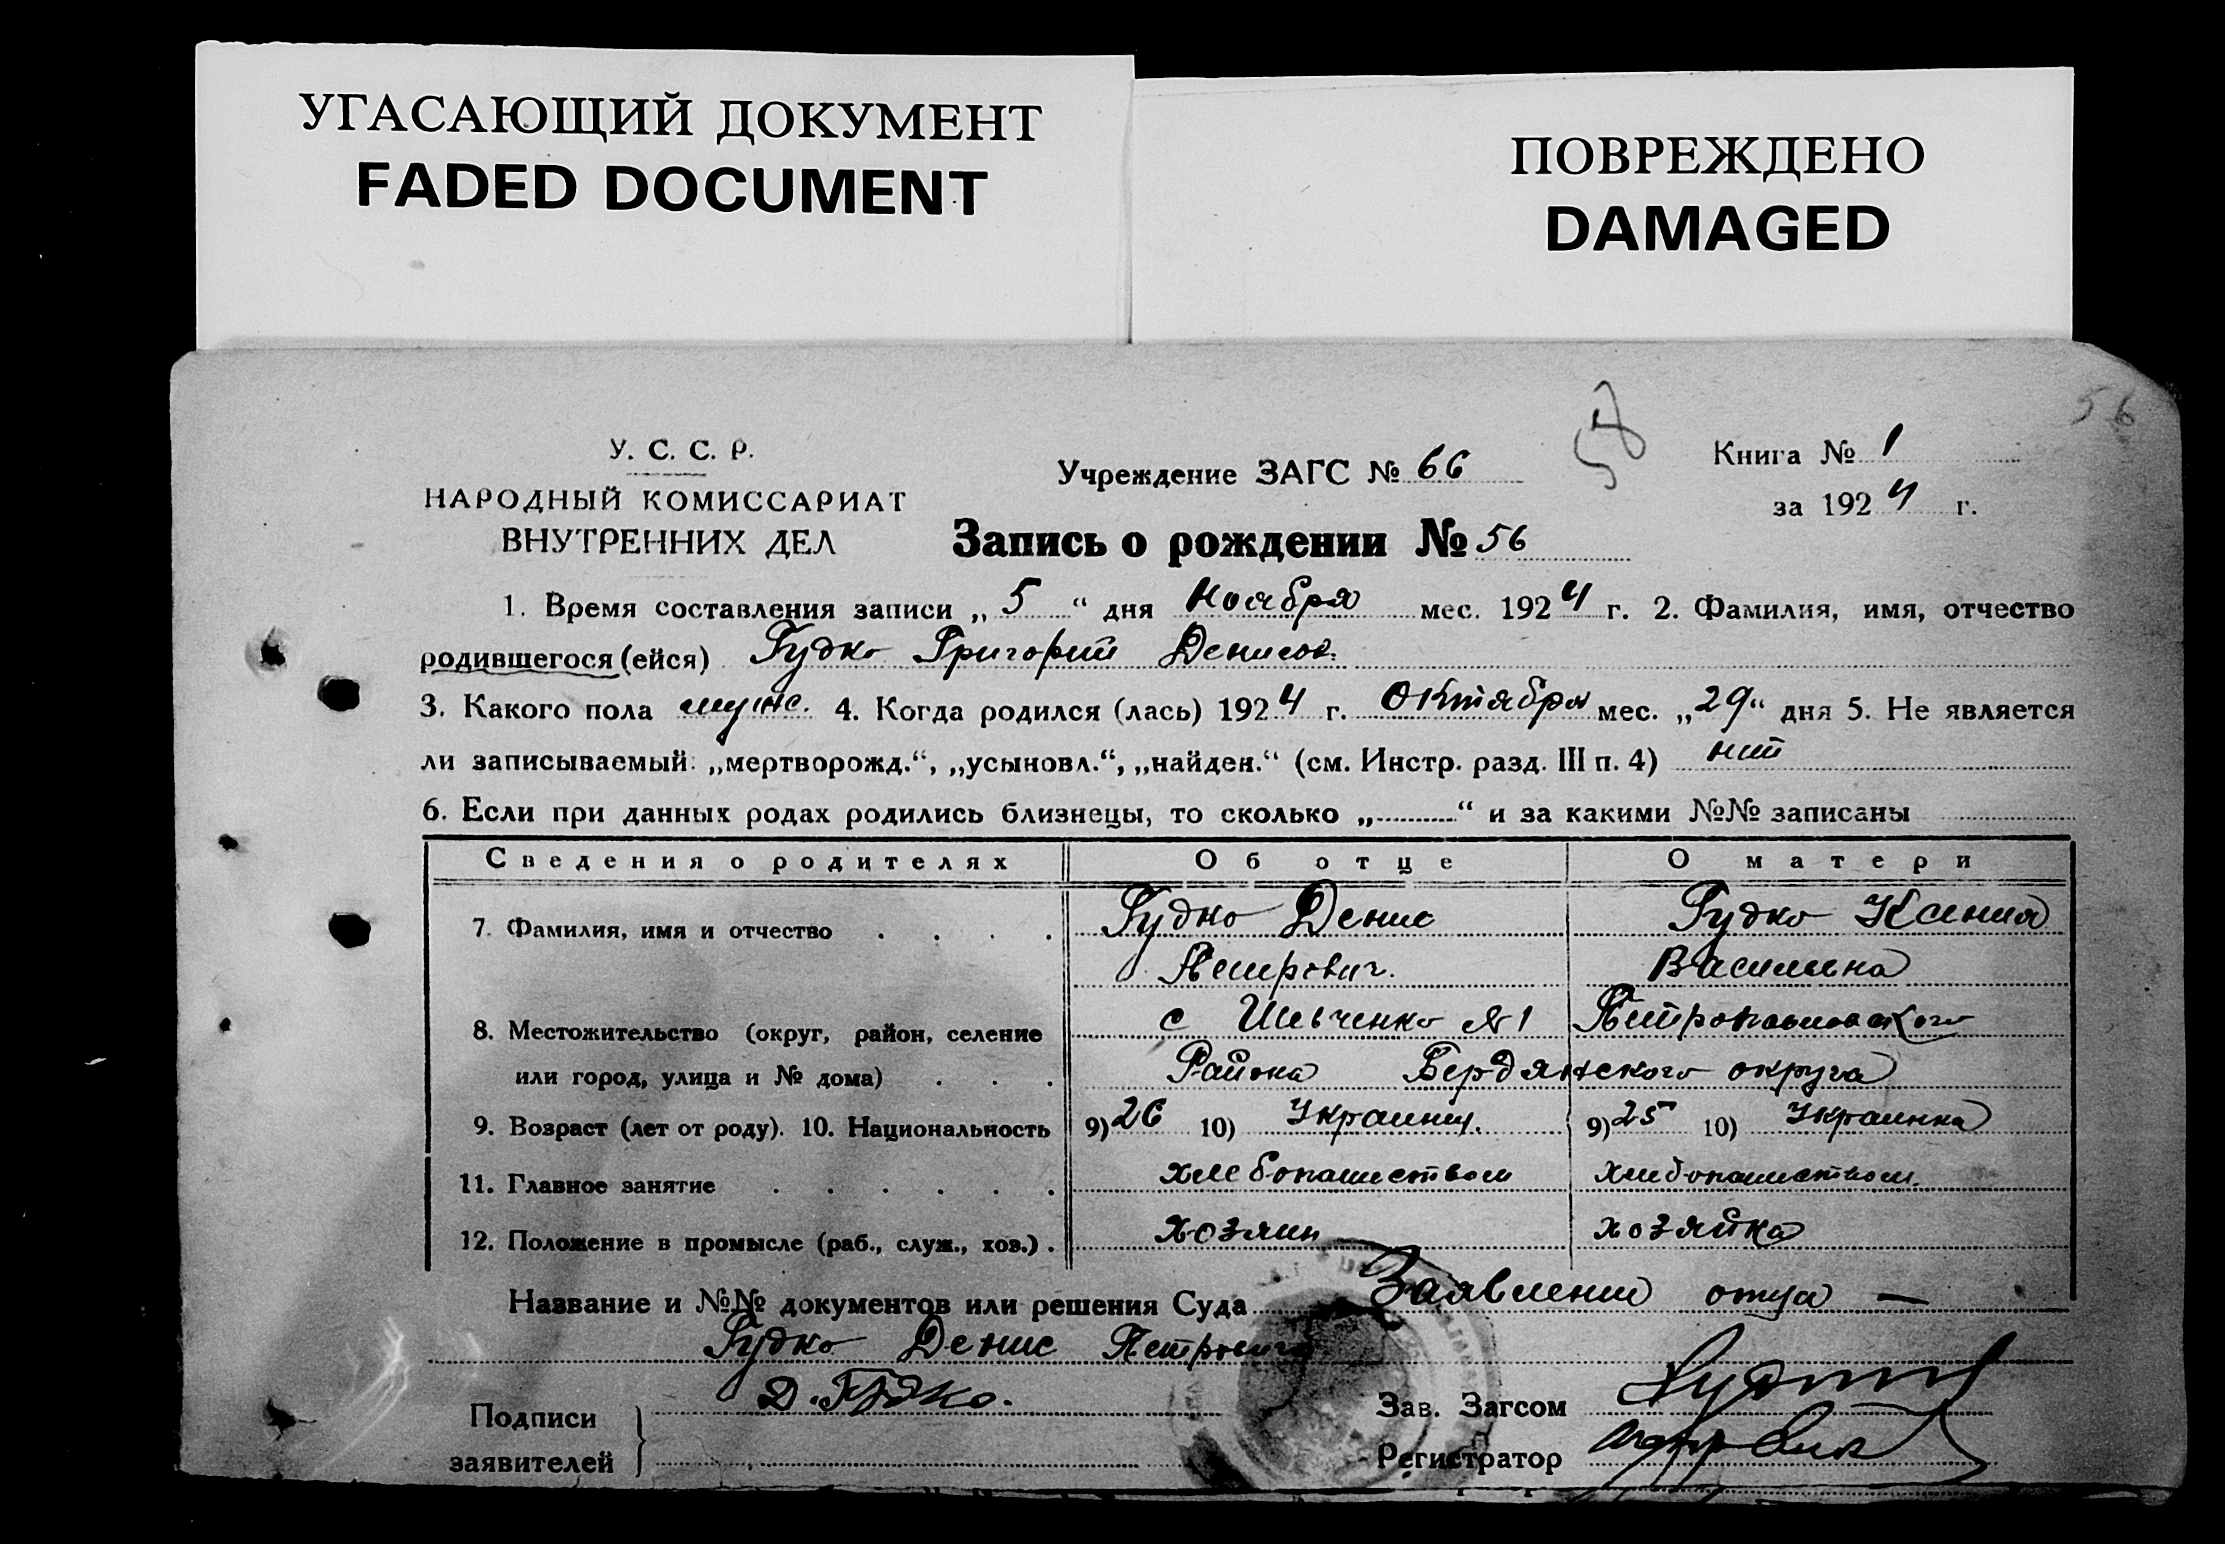 УГАСАЮЩИЙ ДОКУМЕНТ
FADED DOCUMENT
ПОВРЕЖДЕНО
DAMAGED
56
58
У. С. С. Р.
НАРОДНЫЙ КОМИССАРИАТ
ВНУТРЕННИХ ДЕЛ
Учреждение ЗАГС № 66
Книга № 1
за 1924 г.
Запись о рождении № 56
1. Время составления записи „5“ дня Ноября мес. 1924 г. 2. Фамилия, имя, отчество
родившегося (ейся) Гудко Григорий Денисов.
3. Какого пола мужс. 4. Когда родился (лась) 1924 г. Октября мес. „29“ дня 5. Не является
ли записываемый: „мертворожд.“, „усыновл.“, „найден.“ (см. Инстр. разд. III п. 4) нит
6. Если при данных родах родились близнецы, то сколько „..........“ и за какими №№ записаны
Сведения о родителях Об отце О матери
7. Фамилия, имя и отчество . . . . Гудко Денис Гудко Ксения
Петрович. Васильевна
8. Местожительство (округ, район, селение с Шевченко №1 Петропавловского
или город, улица и № дома) . . . Района Бердянского округа
9. Возраст (лет от роду). 10. Национальность 9) 26 10) Украинц. 9) 25 10) Украинка
11. Главное занятие . . . . . . хлебопашеством хлебопашеством.
12. Положение в промысле (раб., служ., хоз.) . хозяин хозяйка
Название и №№ документов или решения Суда Заявление отца —
Гудко Денис Петровича
Подписи
заявителей
Д. Гудко.
Зав. Загсом
Регистратор